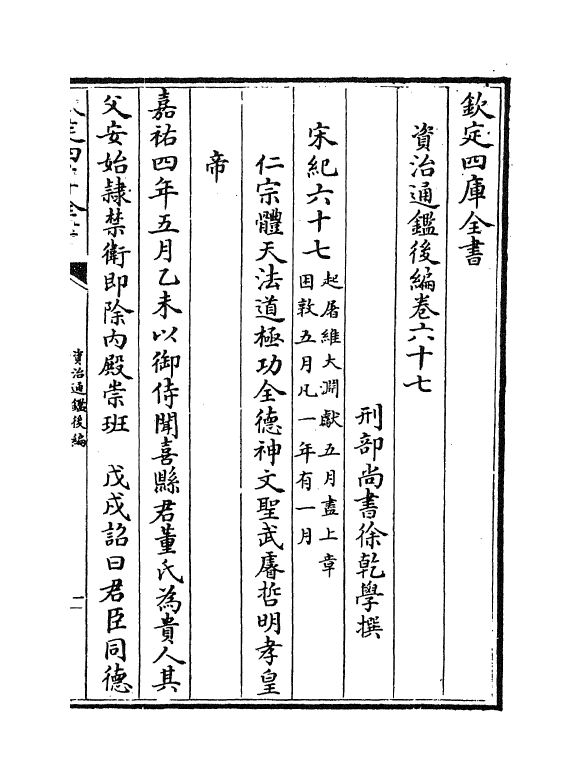 欽定四庫全書
資治通鑑後編卷六十七
刑部尚書徐乾學撰
宋紀六十七起屠維大淵獻五月盡上章
困敦五月凡一年有一月
仁宗體天法道極功全德神文聖武睿哲明孝皇
帝
嘉祐四年五月乙未以御侍聞喜縣君董氏為貴人其
父安始隷禁衛即除内殿崇班　戊戌詔曰君臣同德
資治通鑑後編